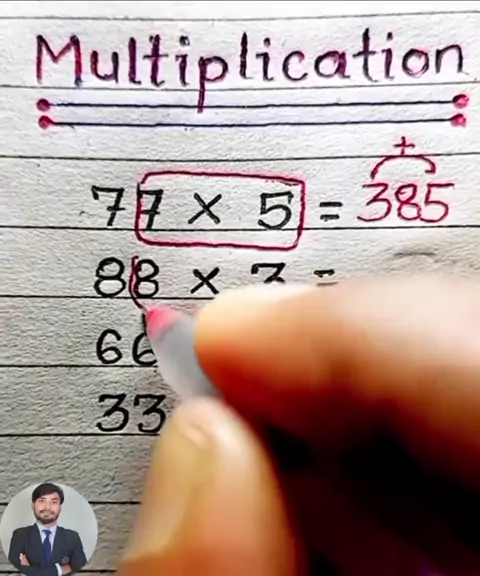 Multiplication
+
77 × 5 = 385
88 × 3 =
66
33